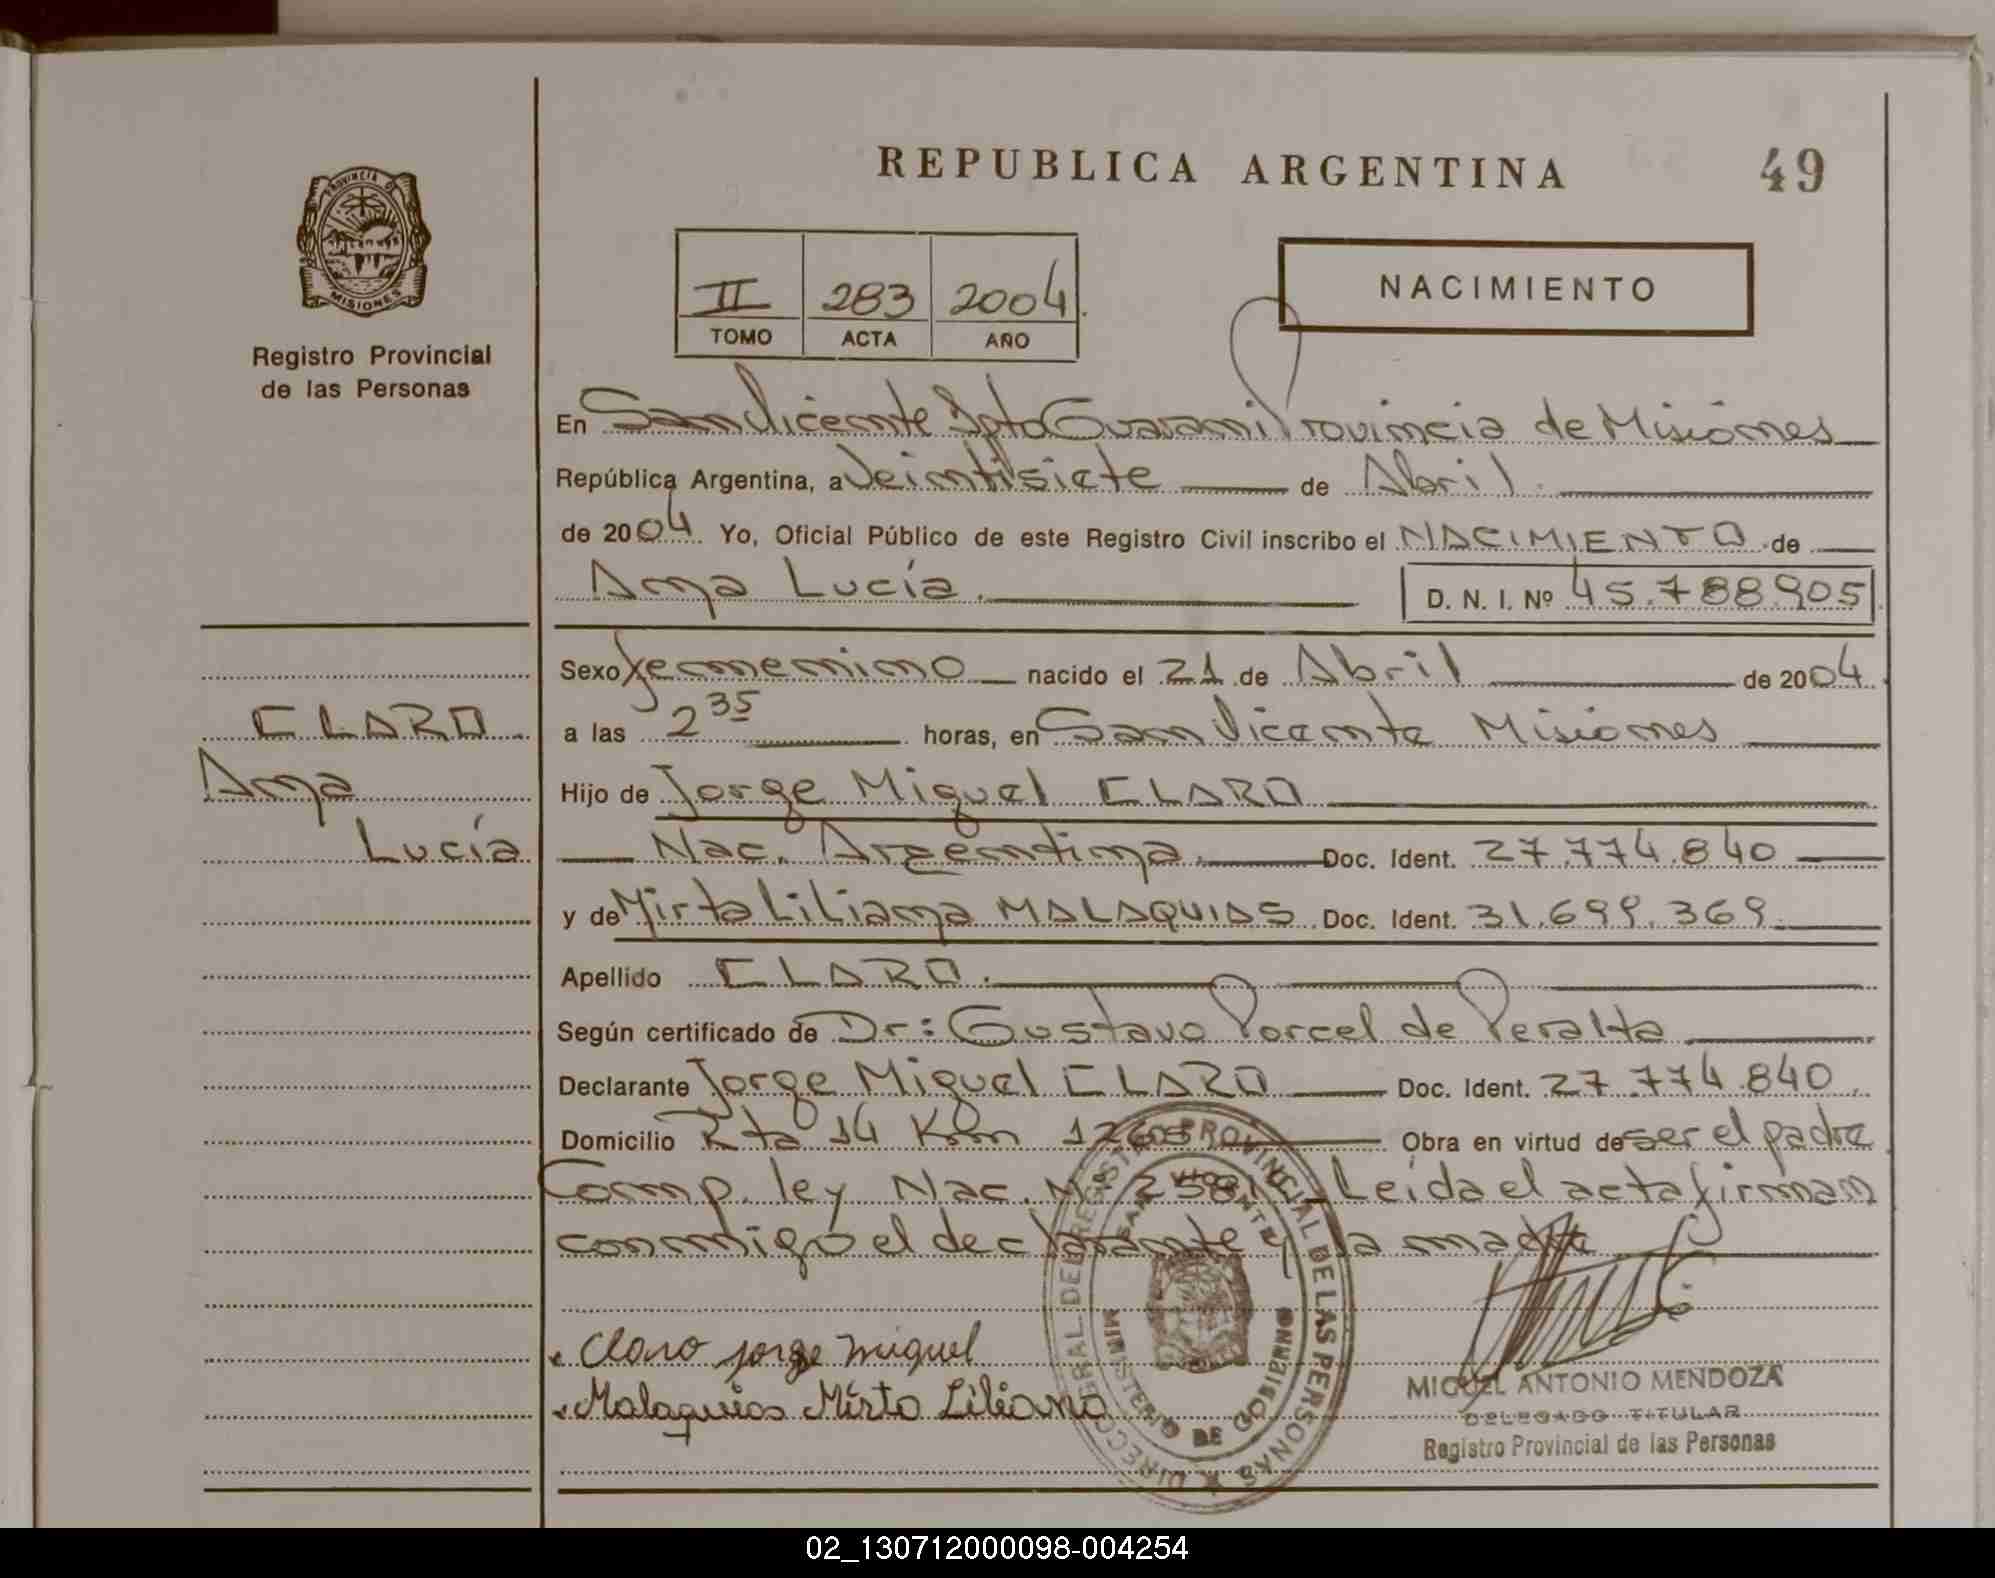 REPUBLICA ARGENTINA
49
PROVINCIA DE
MISIONES
Registro Provincial
de las Personas
II 283 2004
TOMO ACTA AÑO
NACIMIENTO
En San Vicente Dpto Guarani Provincia de Misiones
República Argentina, a Veintisiete de Abril.
de 2004 Yo, Oficial Público de este Registro Civil inscribo el NACIMIENTO de
Ana Lucía. D. N. I. Nº 45.788.905
CLARO
Ana
Lucía
Sexo femenino nacido el 21 de Abril de 2004
a las 2 35 horas, en San Vicente Misiones
Hijo de Jorge Miguel CLARO
Nac. Argentina. Doc. Ident. 27.774.840
y de Mirta Liliana MALAQUIAS Doc. Ident. 31.699.369
Apellido CLARO.
Según certificado de Dr: Gustavo Porcel de Peralta
Declarante Jorge Miguel CLARO Doc. Ident. 27.774.840.
Domicilio Rta 14 Km Obra en virtud de ser el padre
Comp. ley Nac. Leída el acta firman
conmigo el declarante y la madre
Claro jorge miguel
Malaquias Mirta Liliana
DIRECCION GRAL. DEL REGISTRO PROVINCIAL DE LAS PERSONAS
SAN VICENTE
MINISTERIO DE GOBIERNO
MIGUEL ANTONIO MENDOZA
DELEGADO TITULAR
Registro Provincial de las Personas
02_130712000098-004254